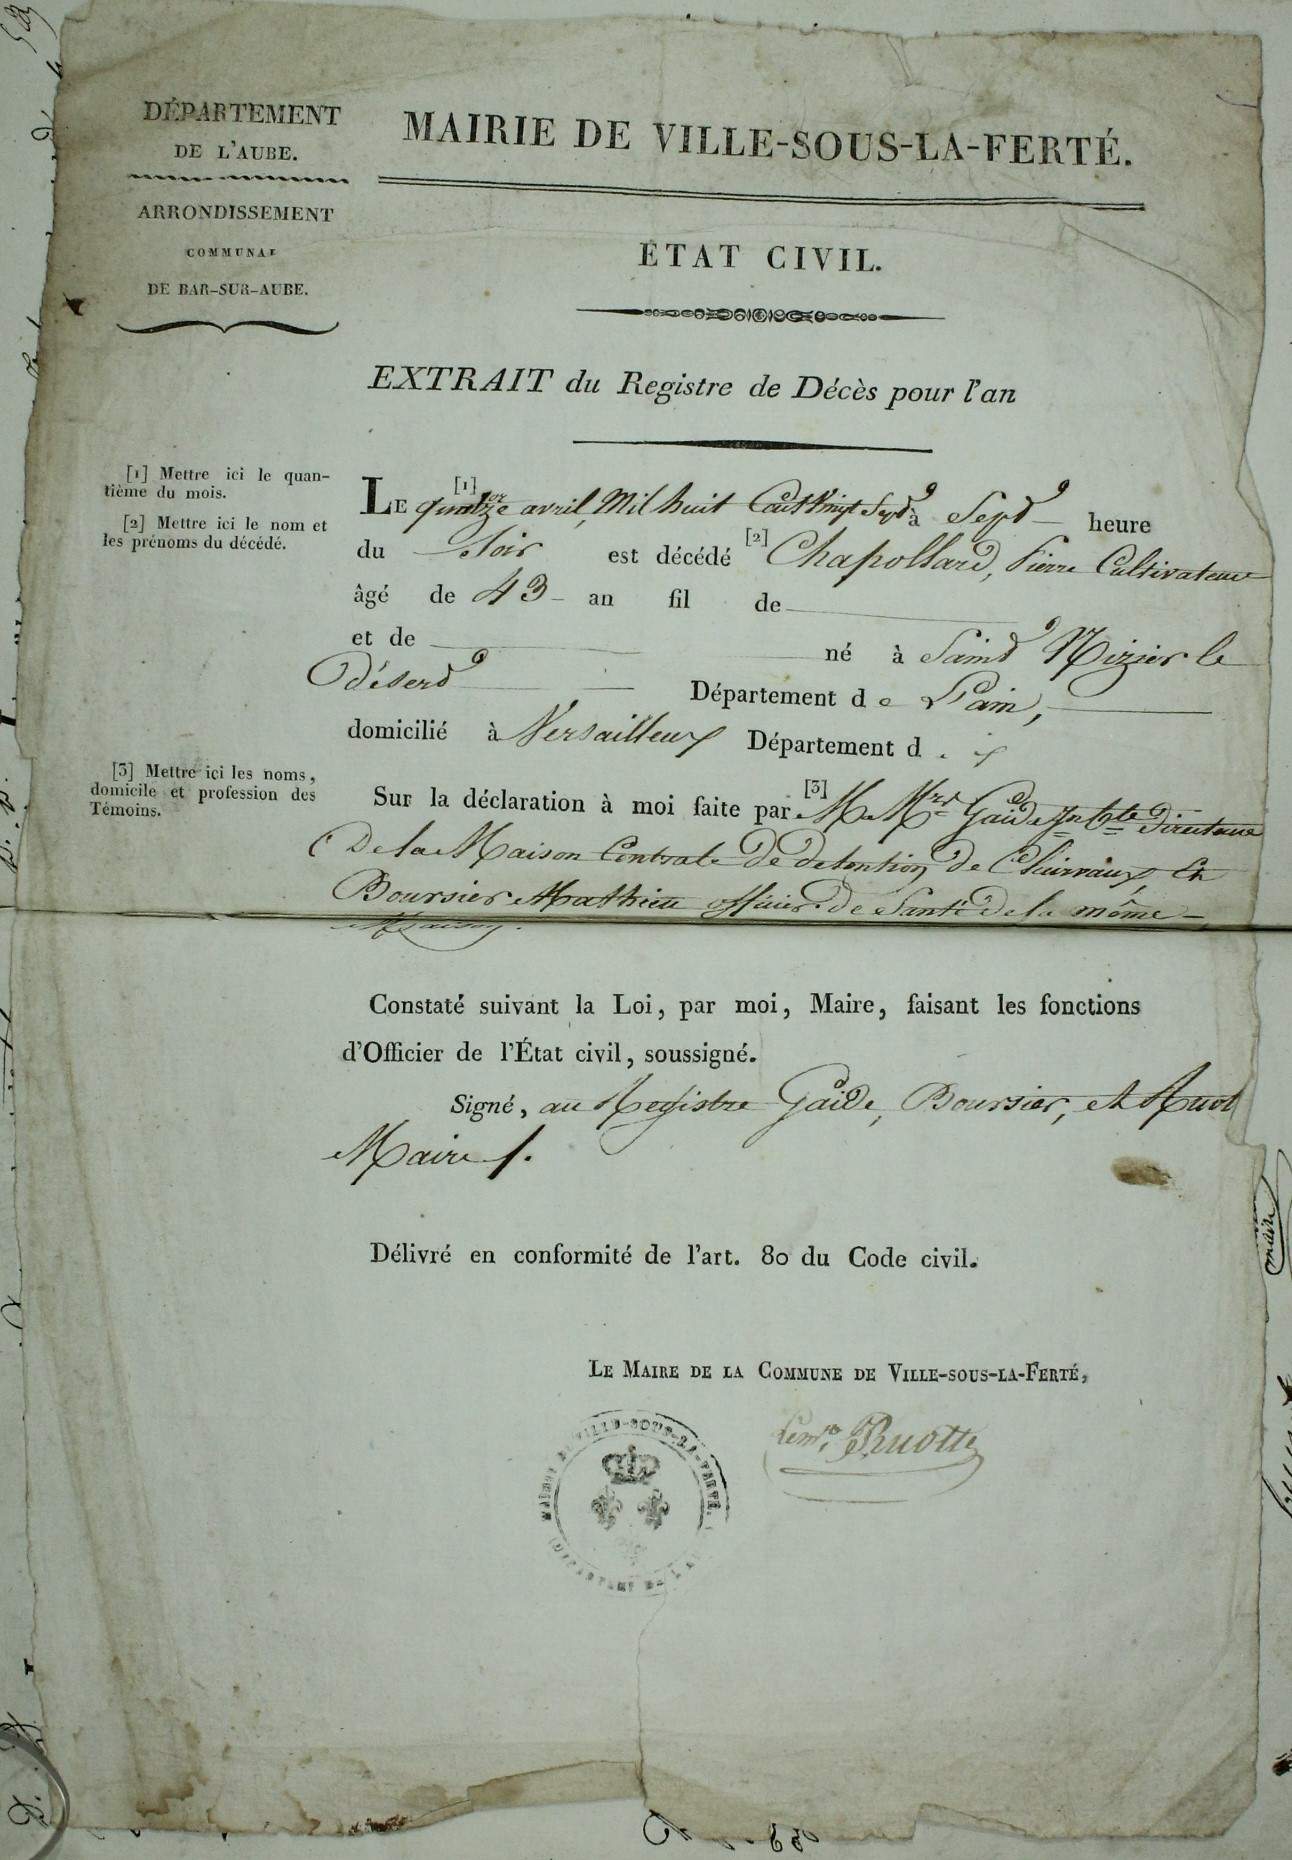 DÉPARTEMENT
DE L'AUBE.
ARRONDISSEMENT
COMMUNAL
DE BAR-SUR-AUBE.
MAIRIE DE VILLE-SOUS-LA-FERTÉ.
ÉTAT CIVIL.
EXTRAIT du Registre de Décès pour l'an
[1] Mettre ici le quan-
tième du mois.
[2] Mettre ici le nom et
les prénoms du décédé.
LE [1] avril, Mil huit Cent Vingt Sept à Sept heure
du Soir est décédé [2] Chapolland, Pierre Cultivateur
âgé de 43 an fil de
et de né à Saint Nizier le
Désert Département de L'ain,
domicilié à Versailleux Département d
[3] Mettre ici les noms,
domicile et profession des
Témoins.
Sur la déclaration à moi faite par [3] Gaide Directeur
De la Maison Centrale de detention de Clairvaux, et
Boursier Mathieu officier de Santé de la même
Maison.
Constaté suivant la Loi, par moi, Maire, faisant les fonctions
d'Officier de l'État civil, soussigné.
Signé, au Registre Gaide, Boursier, et Ruot
Maire
Délivré en conformité de l'art. 80 du Code civil.
LE MAIRE DE LA COMMUNE DE VILLE-SOUS-LA-FERTÉ,
Ruotte
VILLE-SOUS-LA-FERTÉ.
maire